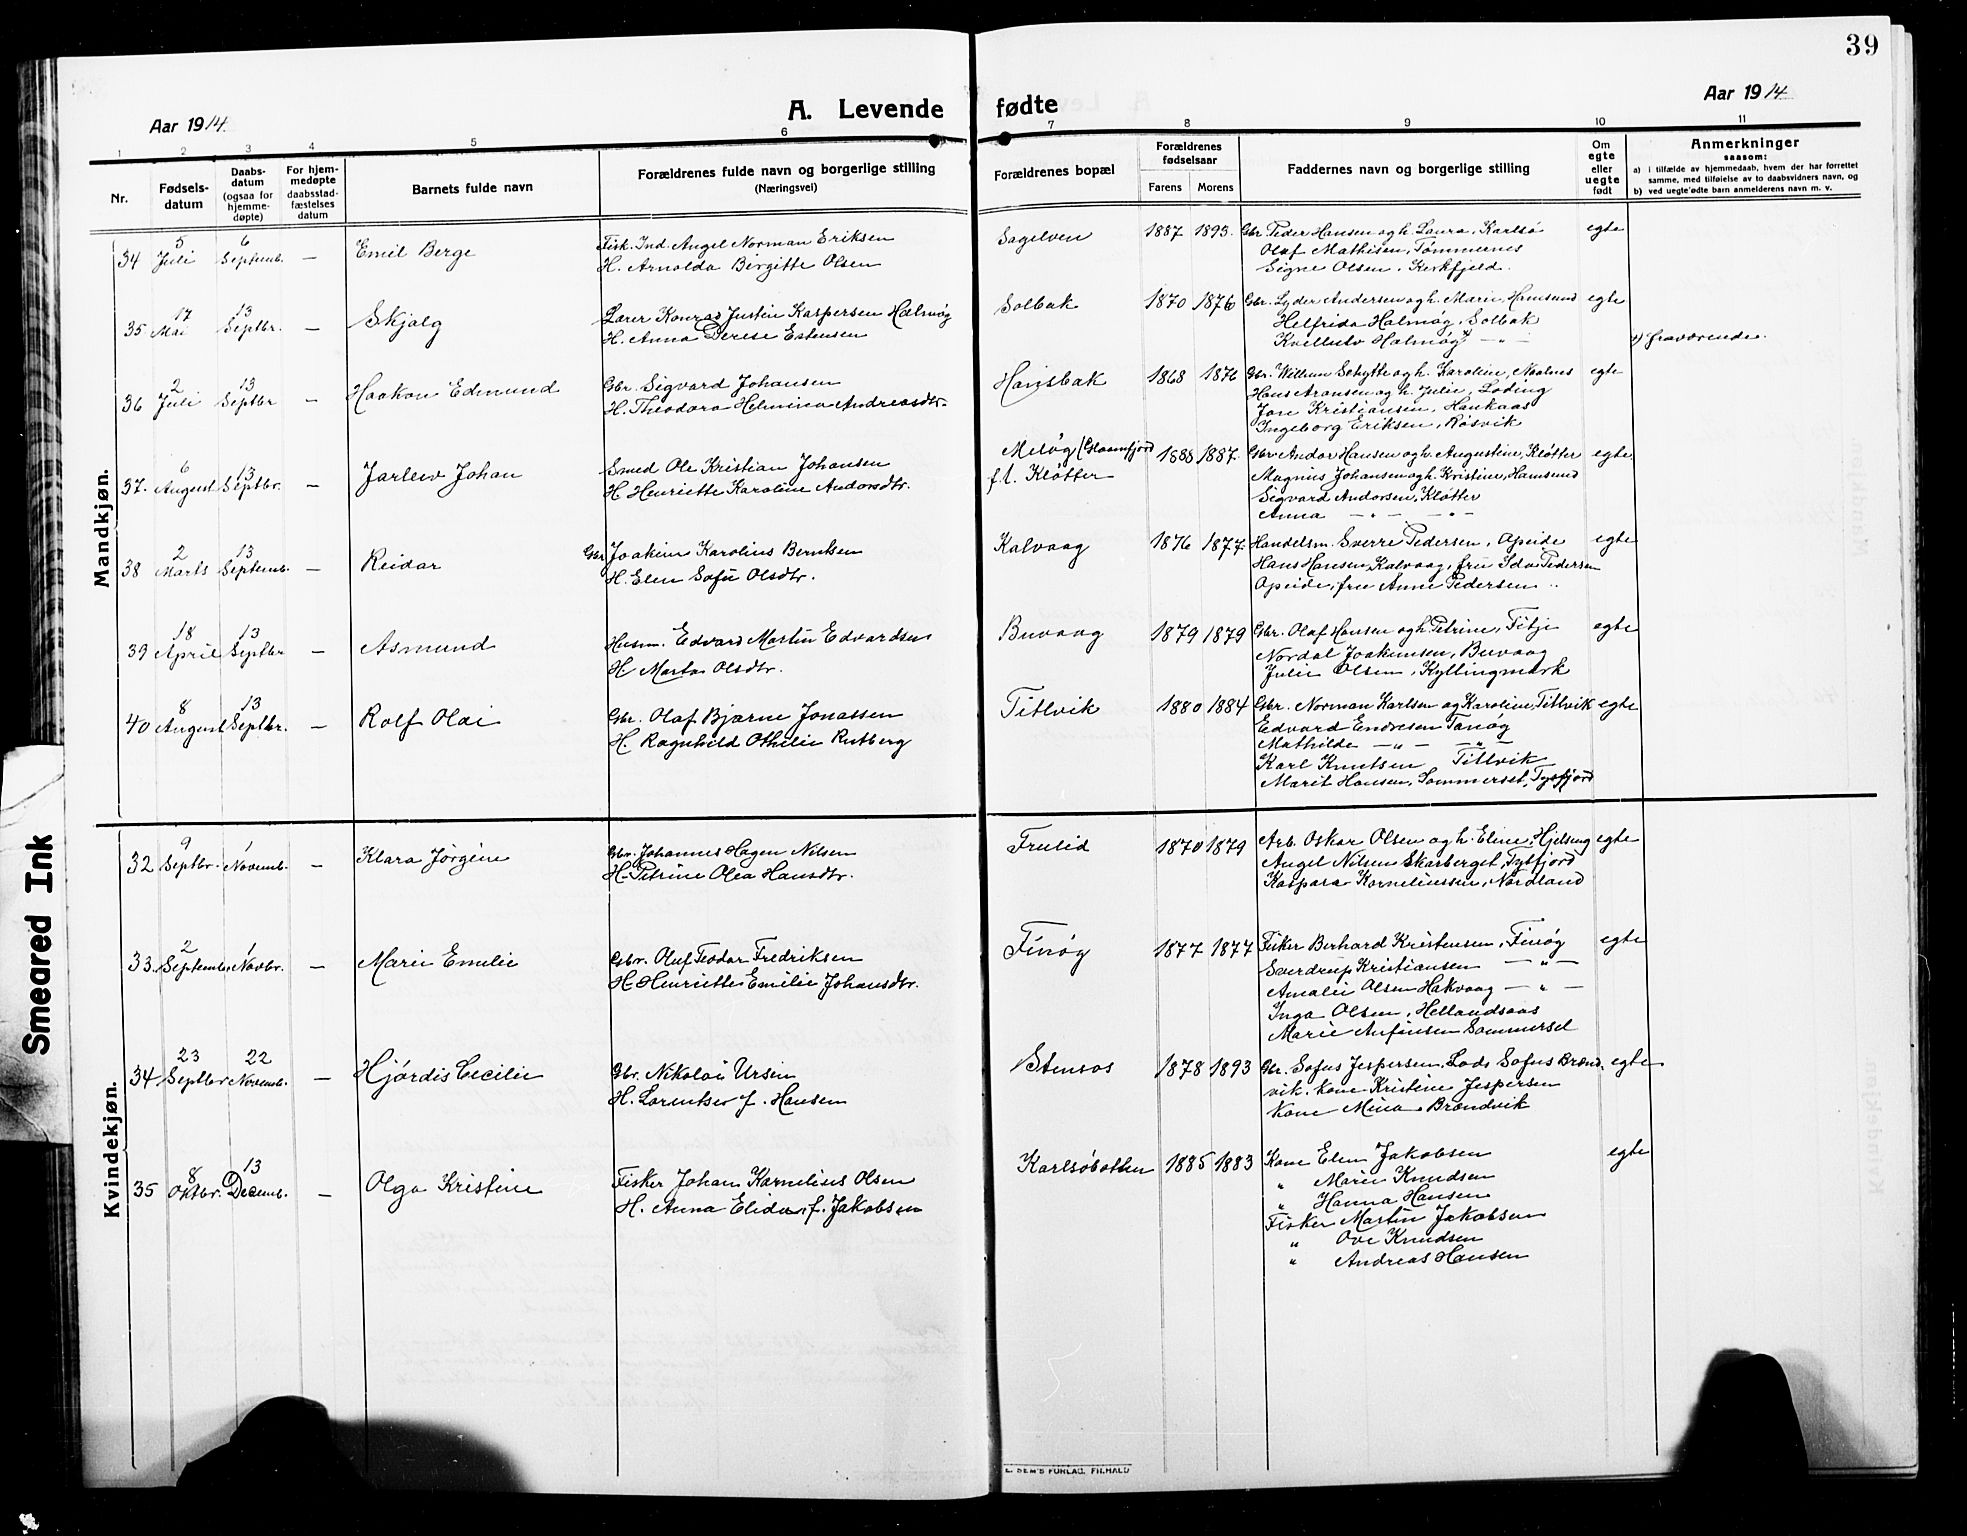 39
Aar 1914.
A. Levende fødte
Aar 1914
1 2 3 4 5 6 7 8 9 10 11
Nr.
Fødsels-
datum
Daabs-
datum
(ogsaa for
hjemme-
døpte)
For hjem-
medøpte
daabsstad-
fæstelses
datum
Barnets fulde navn
Forældrenes fulde navn og borgerlige stilling
(Næringsvei)
Forældrenes bopæl
Forældrenes
fødselsaar
Farens Morens
Faddernes navn og borgerlige stilling
Om
egte
eller
uegte
født
Anmerkninger
saasom:
a) i tilfælde av hjemmedaab, hvem der har forrettet
samme, med tilføielse av to daabsvidners navn, og
b) ved uegte fødte barn anmelderens navn m. v.
Mandkjøn.
34 5 Juli 6 Septemb. — Emil Berge
Fisk. Ind. Angel Norman Eriksen
H. Arnolda Birgitte Olsen
Sagelven 1887 1893.
Gbr Peder Hansen og h. Laura, Karlsø
Olaf Mathisen, Tømmernes
Signe Olsen, Kerkfjeld.
egte
35 17 Mai 13 Septbr. — Skjalg
Lærer Konrad Justin Kaspersen Halmøg
H. Anna Derese Estensen
Solbak 1870 1876
Gbr. Lyder Andersen og h. Marie, Hamsund
Helfrida Halmøg, Solbak
Halmøg x) — " —
egte
x) fraværende.
36 2 Juli 13 Septbr — Haakon Edmund
Gbr. Sigvard Johansen
H. Theodora Helmina Andreasdtr.
Hansbak 1868 1876
Gbr. Willum Schytte og h. Karoline,
Hans Aronsen og h. Julie, Løding
Jon Kristiansen,
Ingeborg Eriksen, Røsvik
egte
37. 6 August 13 Septbr. — Jarlev Johan
Smed Ole Kristian Johansen
H. Henriette Karoline Andorsdtr.
Meløy (Glommfjord
f. t. Kløtter
1888 1887.
Gbr Andor Hansen og h. Augustine, Kløtter
Magnus Johansen og h. Kristine, Hamsund
Sigvard Andorsen, Kløtter
Anna — " — — " —
egte
38 2 Marts 13 Septemb. — Reidar
Gbr Joakim Karolius Berntsen
H. Elen Sofie Olsdtr.
Kalvaag 1876 1877.
Handelsm. Sverre Pedersen, Opeide
Hans Hansen Kalvaag, fru Ida Pedersen
Opeide, fru Anne Pedersen "
egte
39 18 April 13 Septbr — Asmund
Husm. Edvard Martin Edvardsen
H Marta Olsdtr.
Buvaag 1879 1879
Gbr. Olaf Hansen og h. Petrine, Fitje
Nordal Joakimsen, Buvaag
Julie Olsen, Kyllingmark
egte
40 8 August 13 Septbr. — Rolf Olai
Gbr. Olaf Bjarne Jonassen
H. Ragnhild Othilie Rutberg
Titlvik 1880 1884
Gbr. Norman Karlsen og Karoline, Titlvik
Edvard Endresen Tanøg
Mathilde — " — — " —
Karl Knutsen Titlvik
Marit Hansen, Sommerset, Tysfjord
egte
Kvindekjøn.
32 9 Septbr. 1 Novemb. — Klara Jørgine
Gbr. Johannes Hagen Nilsen
H. Petrine Olea Hansdtr.
Frulid 1870 1879
Arb. Oskar Olsen og h. Eline, Hjelseng
Angel Nilsen Skarberget, Tysfjord
Kaspara Korneliussen, Nordland
egte
33. 2 Septemb. 1 Novbr. — Marie Emilie
Gbr. Oluf Teodor Fredriksen
H Henriette Emilie Johansdtr.
Finøg 1877 1877
Fisker Berhard Kristensen, Finøg
Sverdrup Kristiansen — " —
Amalie Olsen Hakvaag — " —
Inga Olsen, Hellandsaas
Marie Anfinsen Sommersel
egte
34 23 Septbr 22 Novemb. — Hjørdis Cecilie
Gbr. Nikolai Ursin
H. Lorentse f. Hansen
Stensos 1878 1893
Gbr. Sofus Jespersen, Lods Sofus Brænd-
vik. Kone Kristine Jespersen
Kone Mina Brændvik
egte
35 8 Oktbr. 13 Decemb. — Olga Kristine
Fisker Johan Kornelius Olsen
H. Anna Elida, f. Jakobsen
Karlsøbotten 1885 1883
Kone Elen Jakobsen
" Marie Knudsen
" Hanna Hansen
Fisker Martin Jakobsen
" Ove Knudsen
" Andreas Hansen
egte
E. SEM'S FORLAG, FR.HALD
Smeared Ink